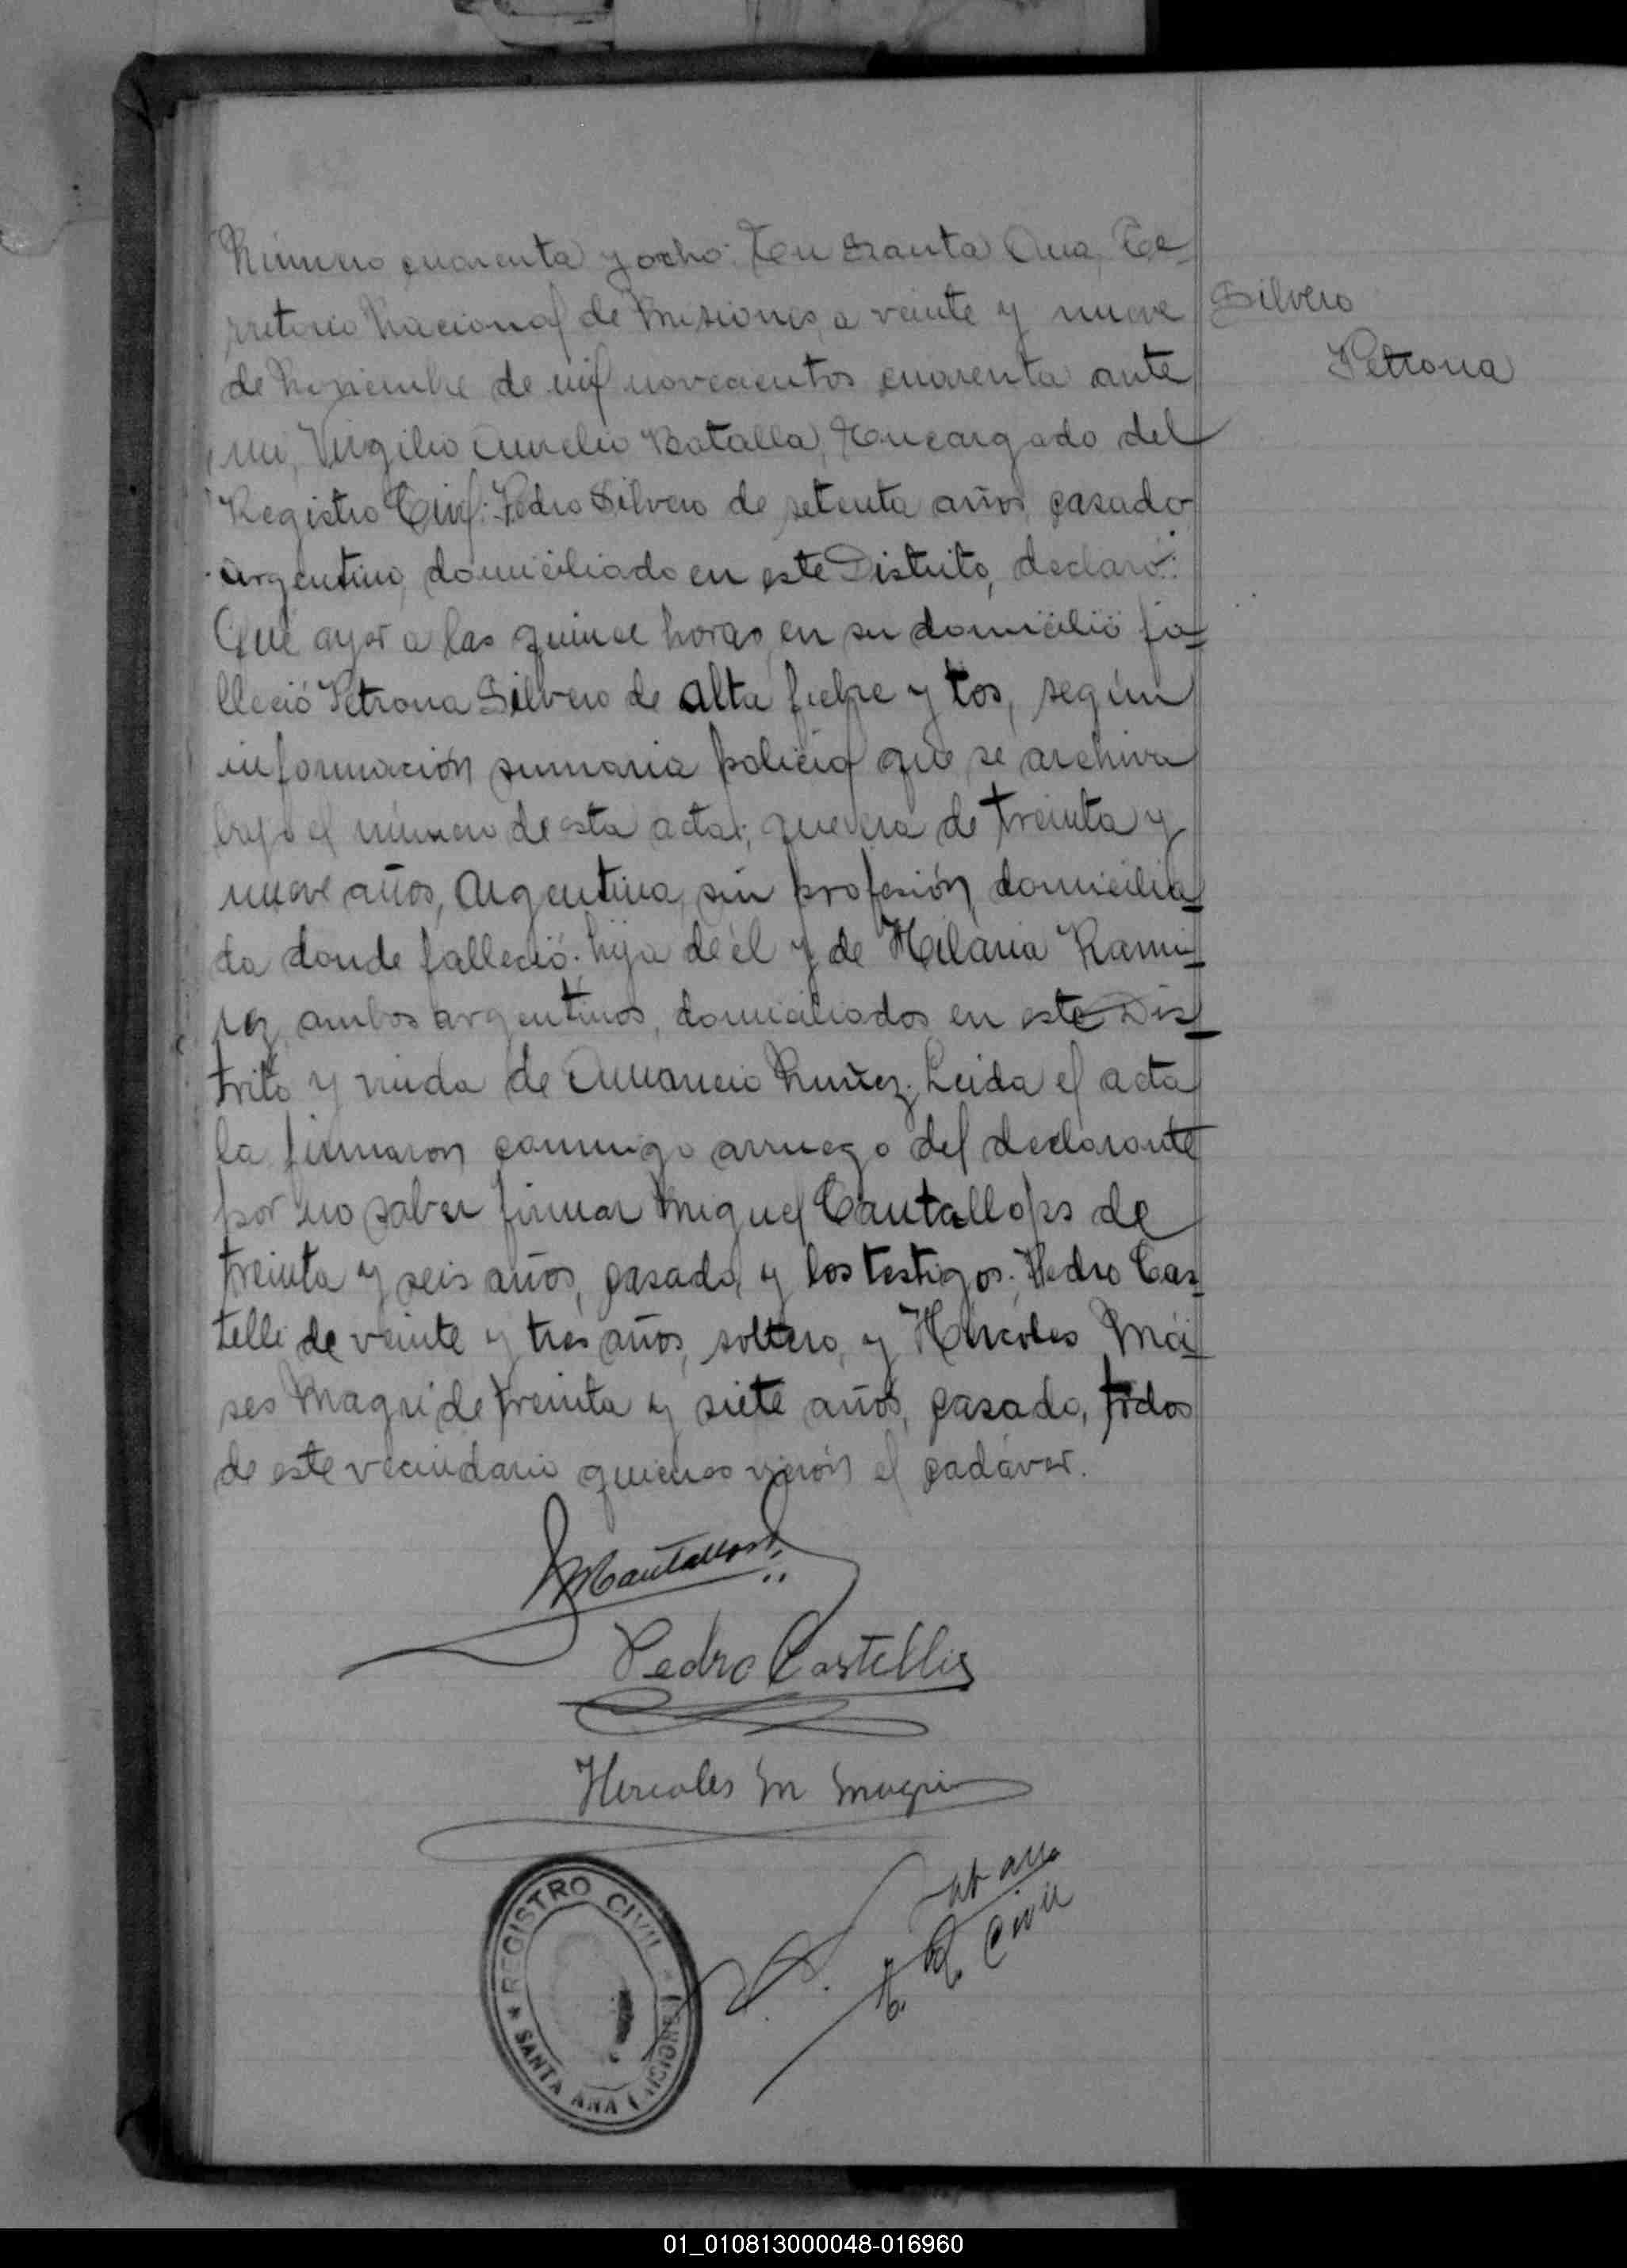 Número cuarenta y ocho: En Santa Ana, Te-
rritorio Nacional de Misiones, a veinte y nueve
de Noviembre de mil novecientos cuarenta ante
mi, Virgilio Aurelio Batalla, Encargado del
Registro Civil: Pedro Silvero de setenta años, casado,
argentino, domiciliado en este Distrito, declaró:
Que ayer a las quince horas, en su domicilio fa-
lleció Petrona Silvero de alta fiebre y tos, según
información sumaria policial que se archiva
bajo el número de esta acta; que era de treinta y
nueve años, Argentina, sin profesión, domicilia-
da donde falleció: hija de él y de Hilaria Rami-
rez, ambos argentinos, domiciliados en este Dis-
trito y viuda de Amancio Nuñez. Leida el acta
la firmaron conmigo arruego del declarante
por no saber firmar Miguel Cantallops de
treinta y seis años, casado, y los testigos: Pedro Cas-
telli de veinte y tres años, soltero, y Hércoles Moi-
ses Magri de treinta y siete años, casado, todos
de este vecindario quienes vieron el cadáver.
Silvero
Petrona
MCantallops
Pedro Castellis
Hercoles M Magri
E. R. Civil
REGISTRO CIVIL
SANTA ANA (MISIONES)
01_010813000048-016960